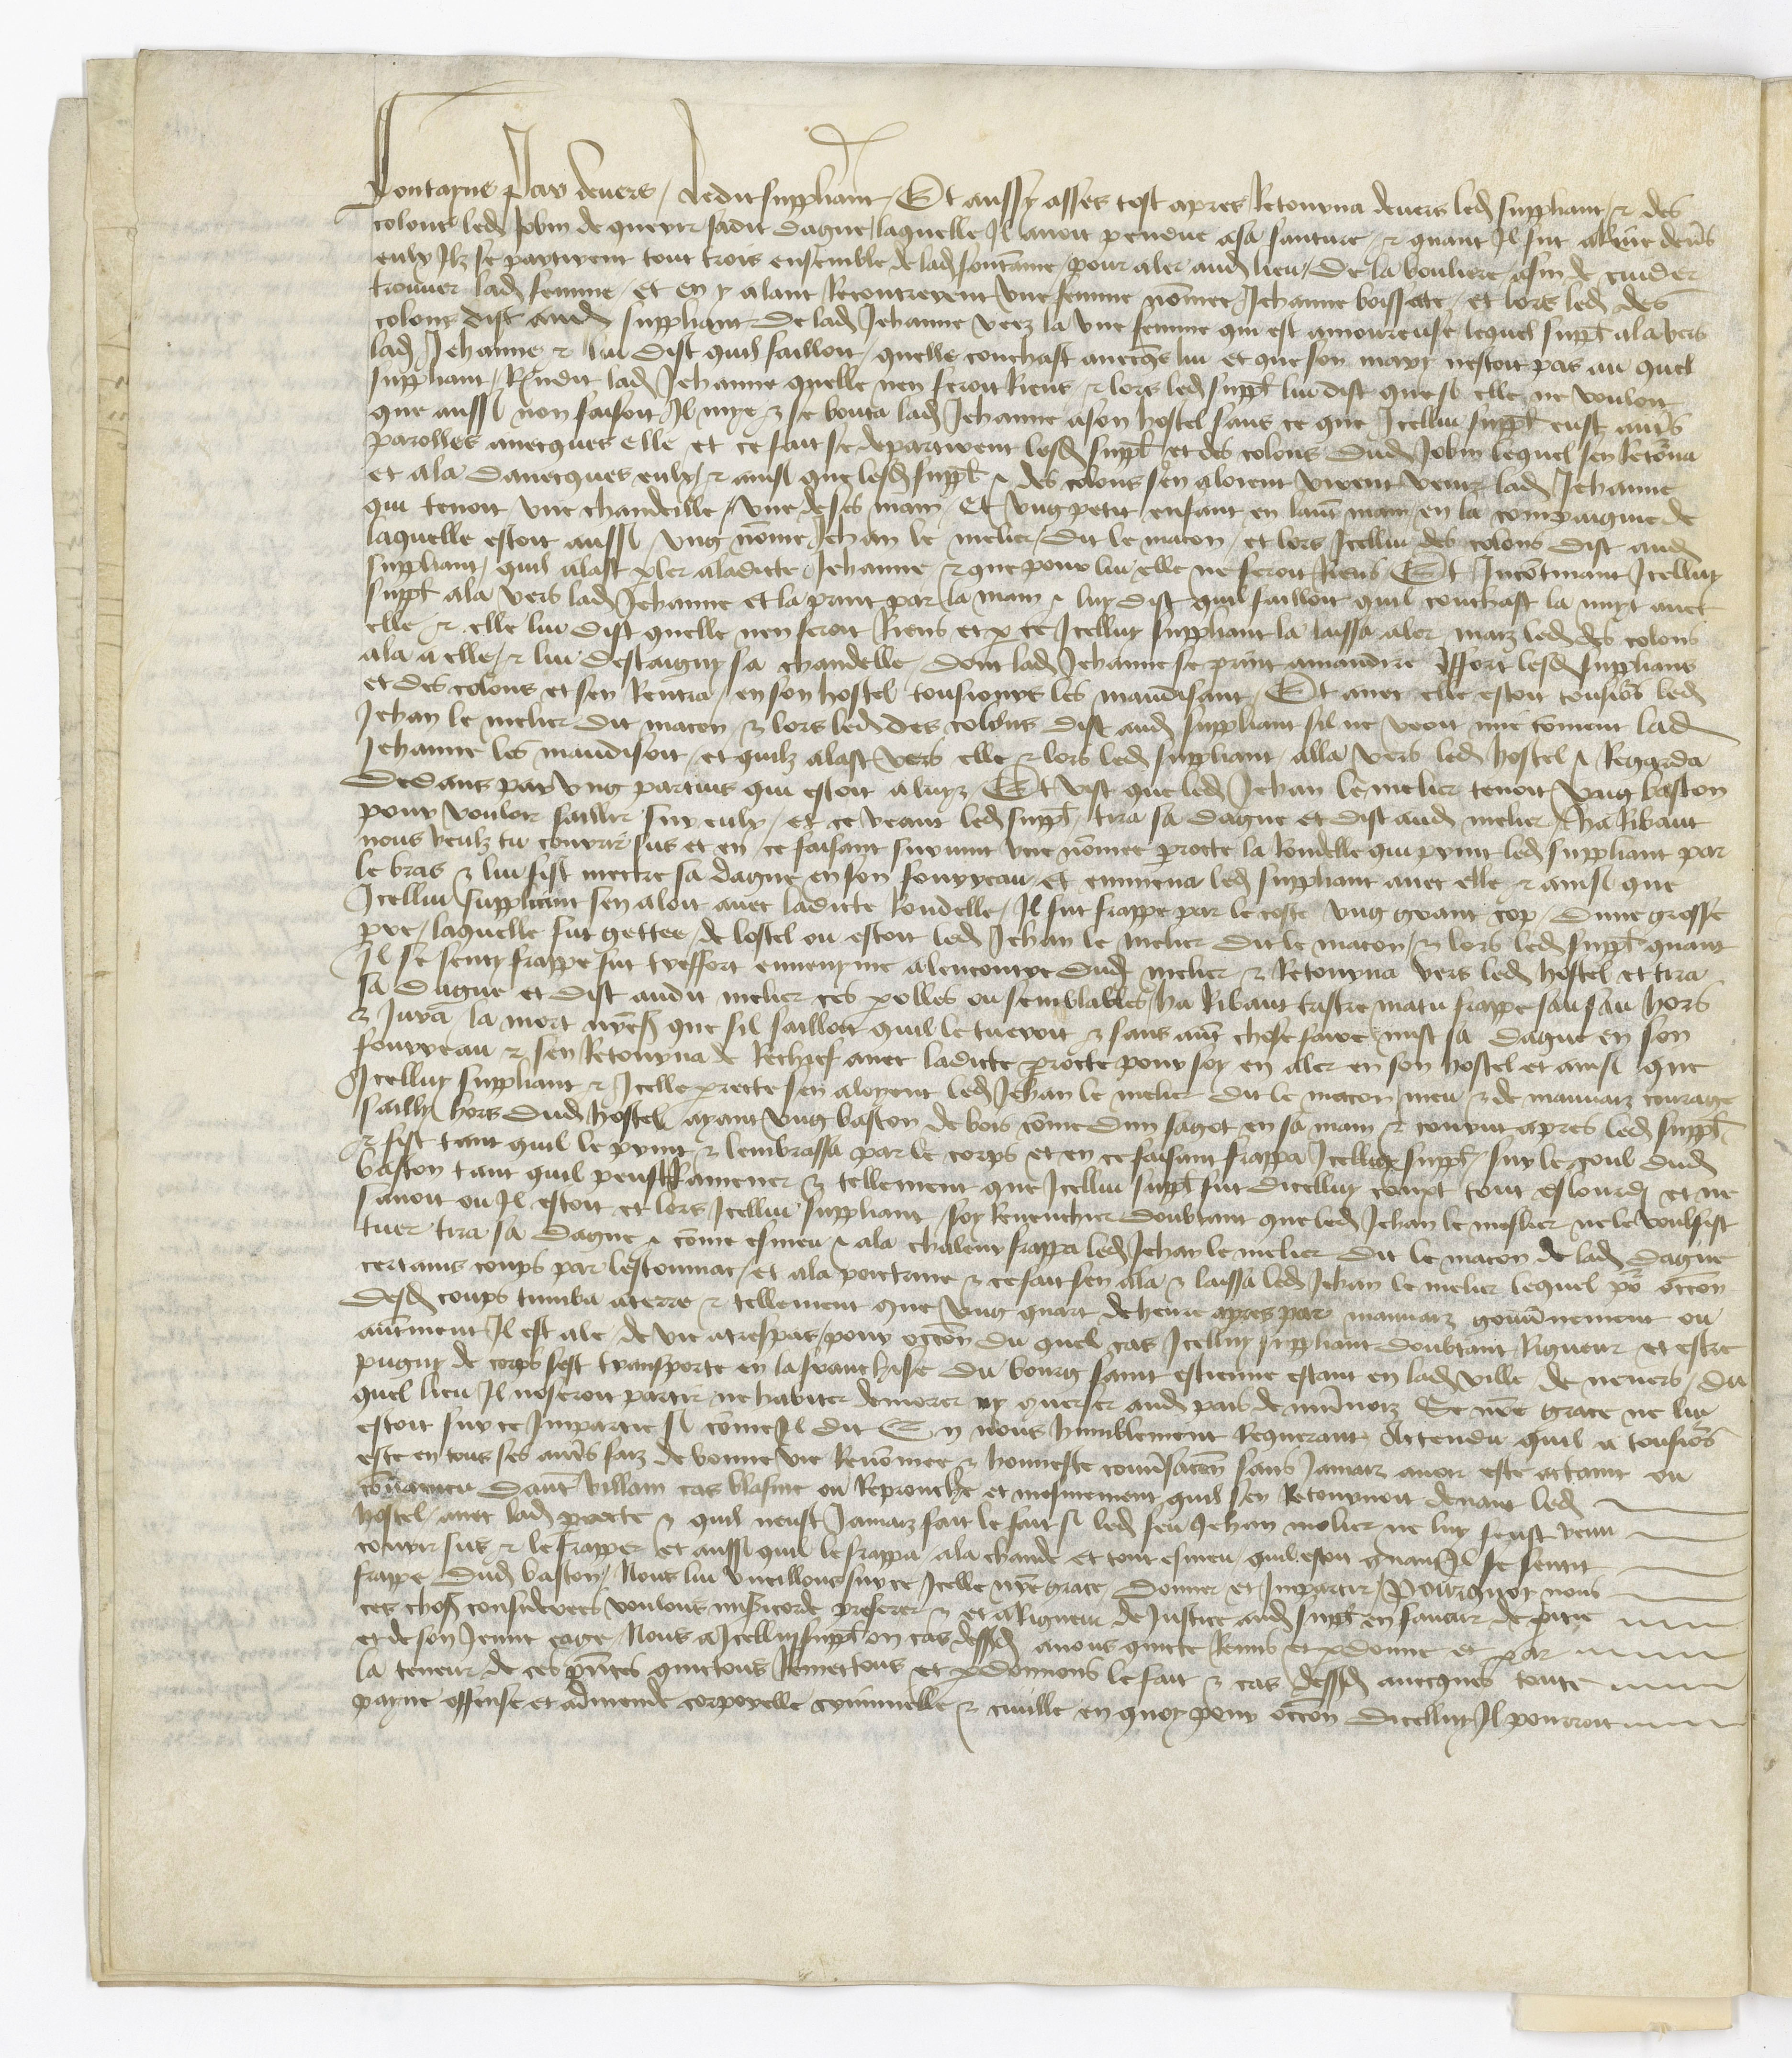 fontaine par devers ledit suppliant Et aussy asses tost apres Retourna devers led suppliant & des
colons led Jobin de querir sadit dague laquelle Il avoit pendue a sa sainture & quant Il fut devs
eulx Ilz se partirent tout trois ensemble de lad fontaine pour aler aud lieu De la bouliere afin de cuider
trouver lad femme et en y alant Recontrerent une femme nomee Jehanne boissate et lors led des
colons dist aud suppliant De lad Jehanne veez la une femme qui est amoureuse lequel suppt ala vers
lad Jehanne & lui dist quil failloit quelle couchast avecqs lui et que son mary nestoit pas au quel
suppliant Rndit lad Jehanne quelle nen feroit Riens & lors led suppt lui dist que se elle ne vouloit
que aussi non faisoit Il mye & se bouta lad Jehanne a son hostel sans ce que Icellui suppt eust aues
parolles avecques elle et ce fait se departirent lesd suppt et des colons Dud Jobin lequel sen Retorna
et ala Davecques eulx & ainsi que lesd suppt & des colons sen aloient virent venir lad Jehanne
qui tenoit une chandeille une de ses main Et ung petit enfant en laut main en la compaignie de
laquelle estoit aussi ung nome Jehan le melier Dit le macon et lors Icellui des colons dist aud
suppliant quil alast pler a ladicte Jehanne & que pour lui elle ne feroit Riens Et Incontinant Icelluy
suppt ala vers lad Jehanne et la print par la main & luy dist quil failloit quil couchast la nuyt avec
elle & elle lui dist quelle nen feroit Riens et p ce Icelluy suppliant la laissa aler maiz led des colons
ala a elle & lui destaigny sa chandelle dont lad Jehanne se print a maudire fort lesd supplians
et des colons et sen Rentra en son hostel tousjours les maudisant Et avec elle estoit tousjos led
Jehan le melier dit macon & lors led des colons dist aud suppliant sil ne veoit mie coment lad
Jehanne les maudisoit et quilz alast vers elle & lors led suppliant alla vers led hostel & Regarda
Dedans par ung partuis qui estoit a luiz Et vist que led Jehan le melier tenoit ung baston
pour vouloir saillir sur eulx et ce veant led suppt tira sa dague et dist aud melier Ha Ribaut
nous veulz tu courir sus et en ce faisant survint une nomee perrete la Rondelle qui print led suppliant par
le bras & lui fist mectre sa dague en son fourreau et emmena led suppliant avec elle & ainsi que
Icellui suppliant sen aloit avec ladicte Rondelle Il fut frappe par le coste ung grant cop Dune grosse
pre laquelle fut gettee de lostel ou estoit led Jehan le melier dit le macon & lors led suppt quant
Il se senty frappe fut tresfort ennenyme alencontre Dud melier & Retourna vers led hostel et tira
sa dague et dist audit melier ces polles ou semblables ha Ribaut tristre matu frappe sau sau hors
& Jura la mort nres que sil sailloit quil le tueroit & sans aut chose faire mist sa dague en son
fourreau & sen Retourna de Rechief avec ladicte perrete pour soy en aler en son hostel et ainsi que
Icelluy suppliant & Icelle perrete sen aloyent led Jehan le melier dit le macon meu & de mauvaiz courage
sailly hors Dud hostel ayant ung baston de bois come Dun fagot en sa main & courut apres led suppt
& fist tant quil le print & lembrassa par le corps et en ce faisant frappa Icelluy suppt sur le coul Dud
baston tant quil peust Ramener & tellement que Icellui suppt fut Dicelluy coupt tout eslourdi et ne
savoit ou Il estoit et lors Icellui suppliant soy Revencher doubtant que led Jehan le meslier ne le voulsist
tuer tira sa dague & come esmeu & a la chaleur frappa led Jehan le melier dit le macon de lad dague
certains coups par lestoumac et a la poictrine & ce fait sen ala & laissa led Jehan le melier lequel po occon
Desd coups tumba a terre & tellement que ung quart de heure apres par mauvaiz gouvnement ou
autment Il est ale de vie a trespas pour occon du quel cas Icelluy suppliant doubtant Rigueur et estre
pugny de corps sest transporte en la franchise du bourg saint estienne estant en lad ville de nevers du
quel lieu Il noseroit partir ne habiter demorer ny querser aud pais de nivnoiz Se nre grace ne lui
estoit sur ce Impartie si come Il dit En nous humblement Requerant Attendu quil a tousjos
este en tous ses aues faiz de bonne vie Renomee & honneste conversacon sans Jamaiz avoir este actaint ou
convaincu Daut villain cas blasme ou Reprouche et mesmement quil sen Retournoit devant led
hostel avec lad perrete & quil neust Jamaiz fait le fait si led feu Jehan melier ne luy feust venu
courir sus & le frapper et aussi quil le frappa a la chaude et tout esmeu quil estoit quant Il se sentit
frappe Dud baston Nous lui vueillons sur ce Icelle nre grace Donner et Impartir Pourquoy nous
ces chos considerees voulons misicorde preferer & et a Rigueur de Justice aud suppt en faveur de pitie
et de son Jeune eage Nous a Icelluy suppt ou cas dessd avons quicte Remis et pdonne et par
la teneur de ces pntes quictons Remettons et pdonnons le fait & cas dessd avecques toute
payne offense et admende corporelle criminelle & civille en quoy pour occon Dicelluy Il pourroit